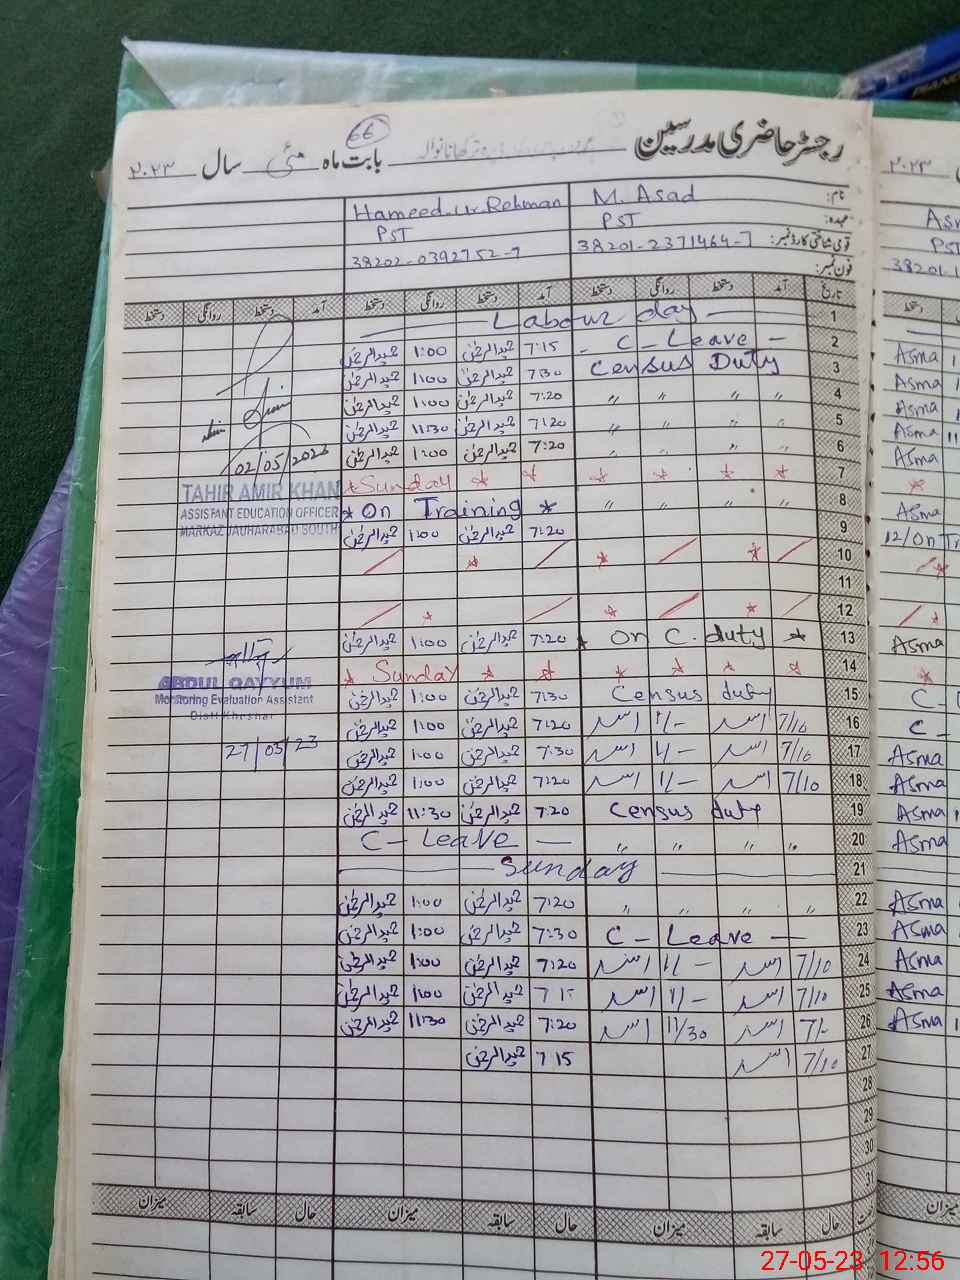 رجسٹر حاضری مدرسین بابت ماہ مئی سال ۲۰۲۳
66
نام: M. Asad Hameed.ur.Rehman
عہدہ: PST PST
قومی شناختی کارڈ نمبر: 38201-2371464-7 38202-0392752-9
فون نمبر:
تاریخ آمد دستخط روانگی دستخط آمد دستخط روانگی دستخط آمد دستخط روانگی دستخط
1 Labour day
2 C-Leave - 7:15 حمیدالرحمٰن 1:00 حمیدالرحمٰن
3 Census Duty 7:30 حمیدالرحمٰن 1:00 حمیدالرحمٰن
4 〃 〃 〃 〃 7:20 حمیدالرحمٰن 1:00 حمیدالرحمٰن
5 〃 〃 〃 〃 7:20 حمیدالرحمٰن 11:30 حمیدالرحمٰن
6 〃 〃 〃 〃 7:20 حمیدالرحمٰن 1:00 حمیدالرحمٰن
02/05/2023
7 * * * * * * Sunday *
TAHIR AMIR KHAN
ASSISTANT EDUCATION OFFICER
MARKAZ JAUHARABAD SOUTH
8 〃 〃 〃 〃 * On Training *
9 7:20 حمیدالرحمٰن 1:00 حمیدالرحمٰن
10
11
12
13 * On C. duty * 7:20 حمیدالرحمٰن 1:00 حمیدالرحمٰن
14 * * * * * * Sunday *
ABDUL QAYYUM
Monitoring Evaluation Assistant
Distt Khushab
15 Census duty 7:30 حمیدالرحمٰن 1:00 حمیدالرحمٰن
16 7/10 اسد 1/- اسد 7:20 حمیدالرحمٰن 1:00 حمیدالرحمٰن
17 7/10 اسد 1/- اسد 7:30 حمیدالرحمٰن 1:00 حمیدالرحمٰن
27/05/23
18 7/10 اسد 1/- اسد 7:20 حمیدالرحمٰن 1:00 حمیدالرحمٰن
19 Census duty 7:20 حمیدالرحمٰن 11:30 حمیدالرحمٰن
20 〃 〃 〃 〃 C-Leave -
21 Sunday
22 〃 〃 〃 〃 7:20 حمیدالرحمٰن 1:00 حمیدالرحمٰن
23 C-Leave - 7:30 حمیدالرحمٰن 1:00 حمیدالرحمٰن
24 7/10 اسد 1/- اسد 7:20 حمیدالرحمٰن 1:00 حمیدالرحمٰن
25 7/10 اسد 1/- اسد 7:15 حمیدالرحمٰن 1:00 حمیدالرحمٰن
26 7/- اسد 11/30 اسد 7:20 حمیدالرحمٰن 11:30 حمیدالرحمٰن
27 7/10 اسد 7:15 حمیدالرحمٰن
28
29
30
31
حال سابقہ میزان حال سابقہ میزان حال سابقہ میزان
۲۰۲۳
PST
38201-1
دستخط
Asma
Asma
Asma
Asma
Asma
*
Asma
12/On
*
Asma
*
C-
C-
Asma
Asma
Asma
Asma
Asma
Asma
Asma
Asma
Asma
میزان
27-05-23 12:56